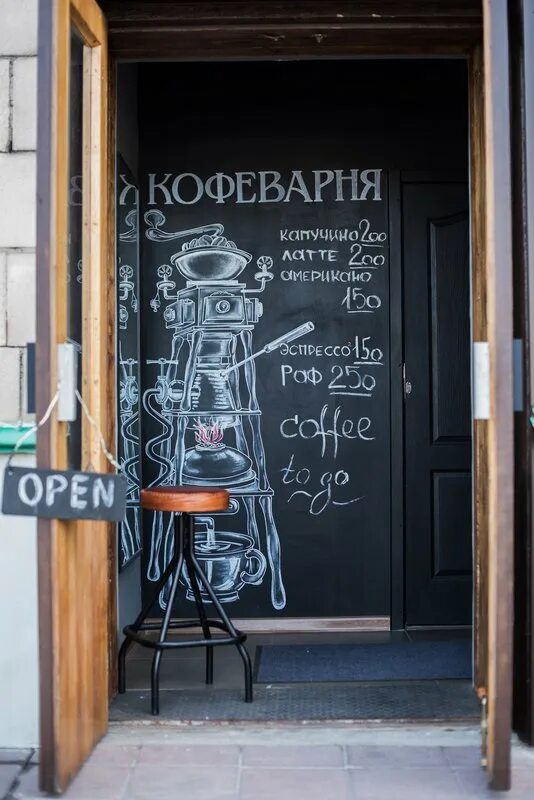 КОФЕВАРНЯ
капучино 200
латте 200
американо
150
эспрессо 150
Раф 250
coffee
to go
OPEN